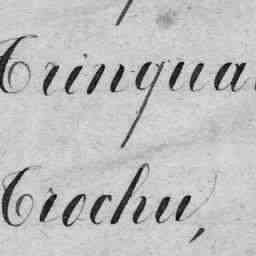 Trinqua
Trochu,